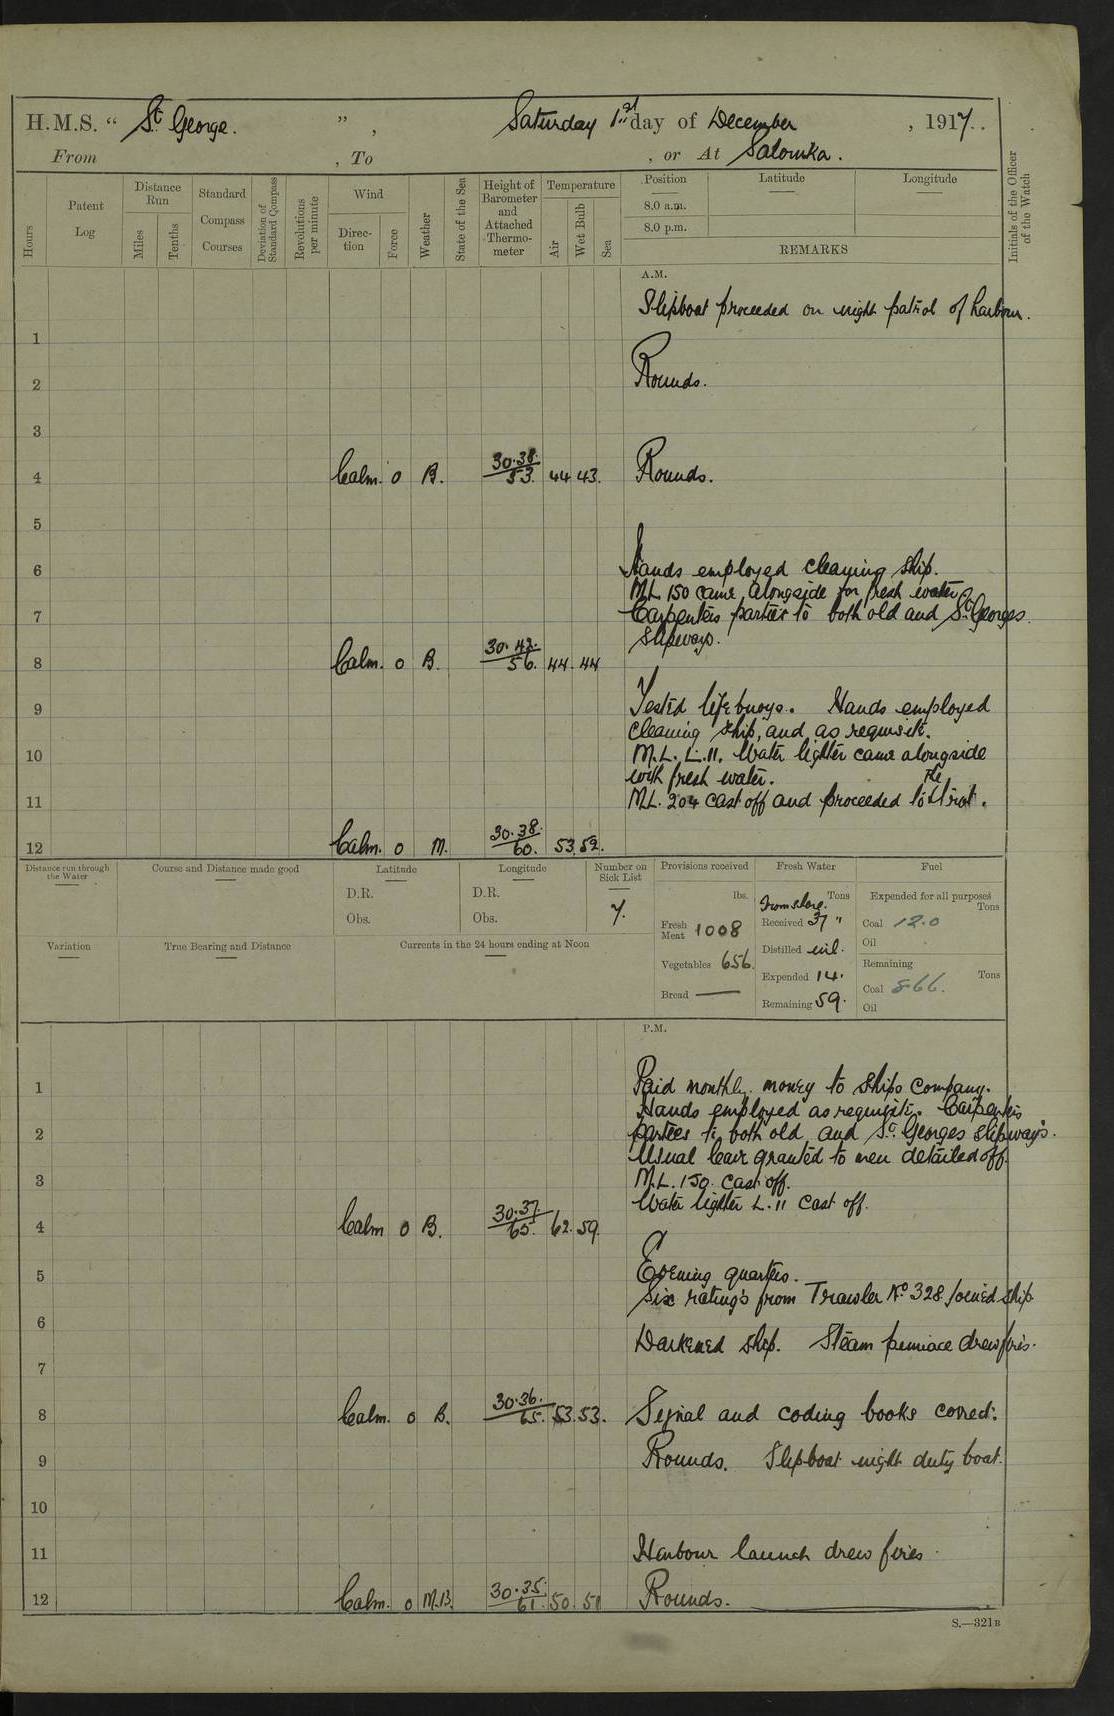 H.M.S. “ St George. ” , Saturday 1st day of December , 1917.
From , To , or At Salonika.
Hours
Patent Log
Distance Run
Miles
Tenths
Standard Compass Courses
Deviation of Standard Compass
Revolutions per minute
Wind
Direction
Force
Weather
State of the Sea
Height of Barometer and Attached Thermometer
Temperature
Air
Wet Bulb
Sea
Position
Latitude
Longitude
8.0 a.m.
8.0 p.m.
REMARKS
Initials of the Officer of the Watch
A.M.
Slipboat proceeded on night patrol of harbour.
1
2 Rounds.
3
4 Calm. 0 B. 30.38. 53. 44 43. Rounds.
5
6 Hands employed cleaning ship.
ML 150 came alongside for fresh water
7 Carpenters parties to both old and St Georges
slipways.
8 Calm. 0 B. 30.42. 56. 44. 44
9 Tested lifebuoys. Hands employed
cleaning ship, and as requisite.
10 M.L. L.11. Water lighter came alongside
with fresh water.
11 ML. 204 cast off and proceeded to the trot.
12 Calm. 0 M. 30.38. 60. 53. 52.
Distance run through the Water
Course and Distance made good
Latitude
D.R.
Obs.
Longitude
D.R.
Obs.
Number on Sick List
7.
Provisions received
lbs.
Fresh Meat 1008
Vegetables 656.
Bread —
Fresh Water
From shore. Tons
Received 37 "
Distilled nil.
Expended 14.
Remaining 59.
Fuel
Expended for all purposes
Tons
Coal 12.0
Oil
Remaining
Tons
Coal 866.
Oil
Variation
True Bearing and Distance
Currents in the 24 hours ending at Noon
P.M.
1 Paid monthly money to ships company.
Hands employed as requisite. Carpenters
2 parties to both old and St. Georges slipways.
Usual leave granted to men detailed off.
3 M.L. 150. cast off.
Water lighter L.11 cast off.
4 Calm 0 B. 30.37. 65. 62. 59.
5 Evening quarters.
Six ratings from Trawler No 328 joined ship
6 Darkened ship. Steam pinnace drew fires.
7
8 Calm. 0 B. 30.36. 65. 53. 53. Signal and coding books correct.
9 Rounds. Slipboat night duty boat.
10
11 Harbour launch drew fires.
12 Calm. 0 M.B. 30.35. 61. 50. 51 Rounds.
S.—321B